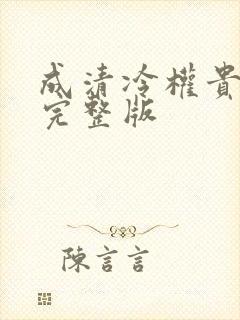 成清冷權貴
完整版
陳言言